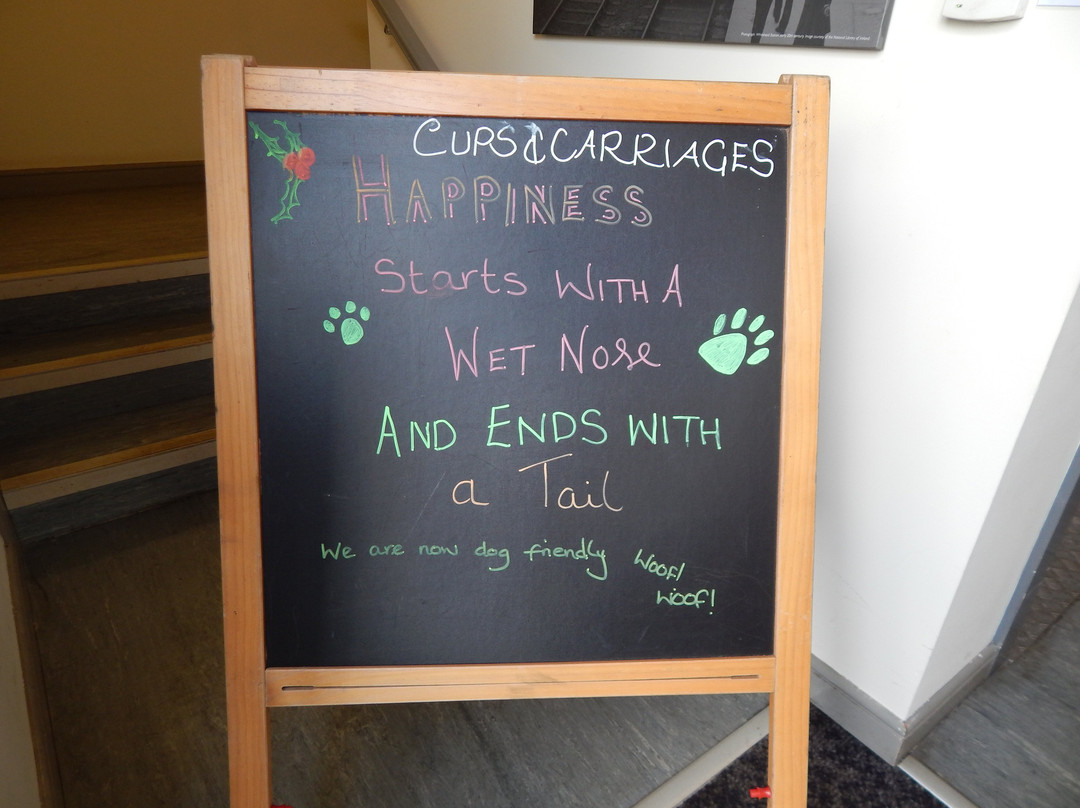 CUPS & CARRIAGES
HAPPINESS
Starts WITH A
WET NOSE
AND ENDS WITH
a Tail
We are now dog friendly Woof!
Woof!